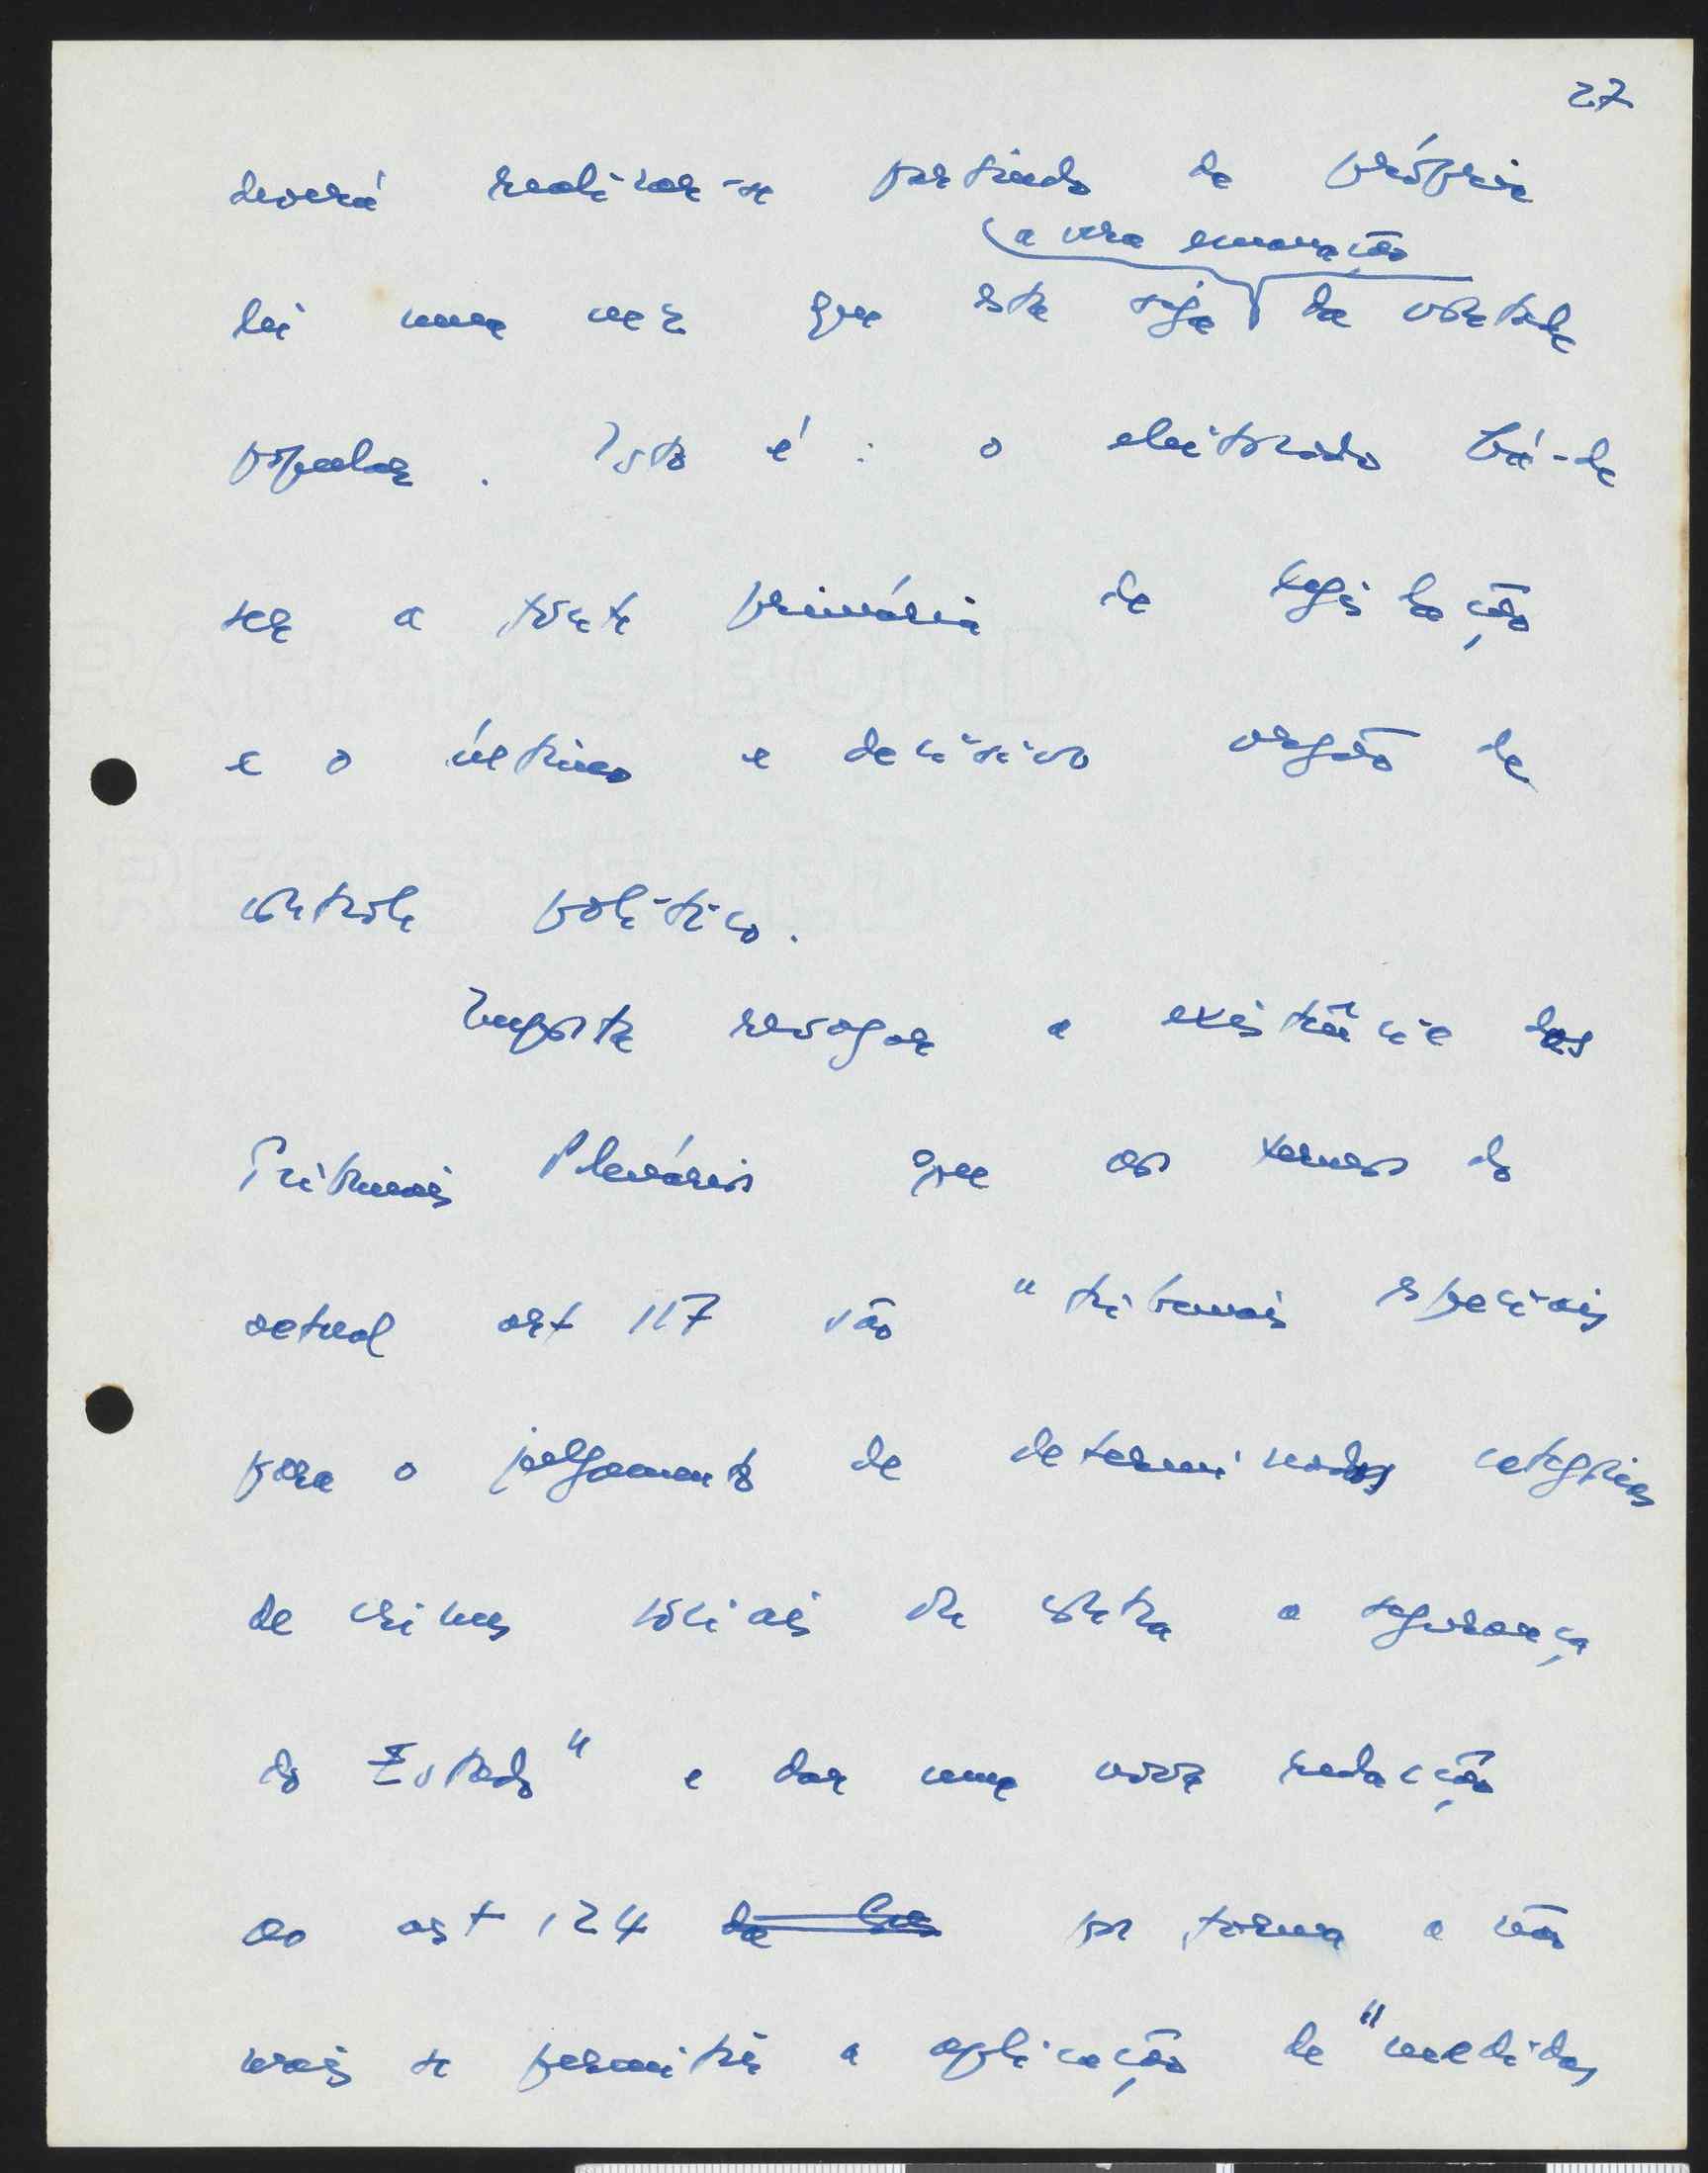 27
deverá realizar-se partindo da própria
a vera emanação
lei uma vez que esta seja da vontade
popular. Isto é: o eleitorado há-de
ser a fonte primária da legislação
e o último e decisivo orgão de
controle político.
Importa revogar a existência dos
Tribunais Plenários que aos termos do
actual art 117 são "tribunais especiais
para o julgamento de determinadas categorias
de crimes sociais ou contra a segurança
do Estado" e dar uma nova redacção
ao art 124 por forma a não
mais se permitir a aplicação de "medidas